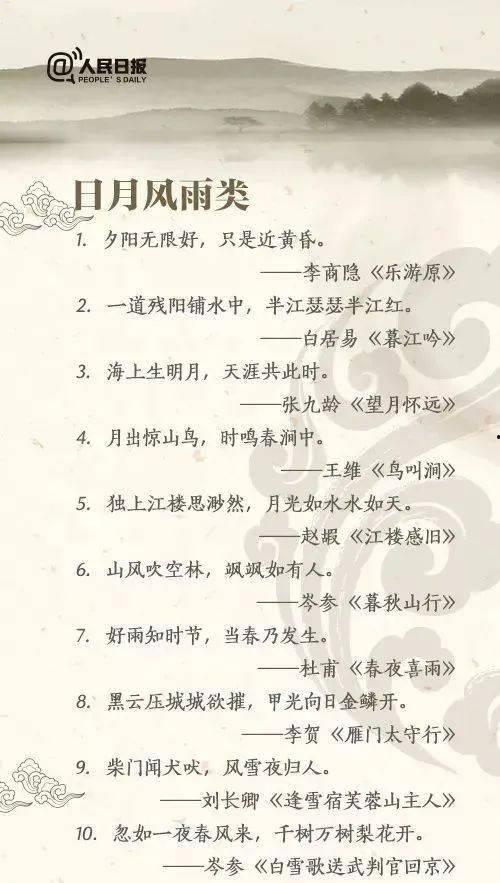 @人民日报
PEOPLE'S DAILY
日月风雨类
1. 夕阳无限好，只是近黄昏。
——李商隐《乐游原》
2. 一道残阳铺水中，半江瑟瑟半江红。
——白居易《暮江吟》
3. 海上生明月，天涯共此时。
——张九龄《望月怀远》
4. 月出惊山鸟，时鸣春涧中。
——王维《鸟叫涧》
5. 独上江楼思渺然，月光如水水如天。
——赵嘏《江楼感旧》
6. 山风吹空林，飒飒如有人。
——岑参《暮秋山行》
7. 好雨知时节，当春乃发生。
——杜甫《春夜喜雨》
8. 黑云压城城欲摧，甲光向日金鳞开。
——李贺《雁门太守行》
9. 柴门闻犬吠，风雪夜归人。
——刘长卿《逢雪宿芙蓉山主人》
10. 忽如一夜春风来，千树万树梨花开。
——岑参《白雪歌送武判官回京》